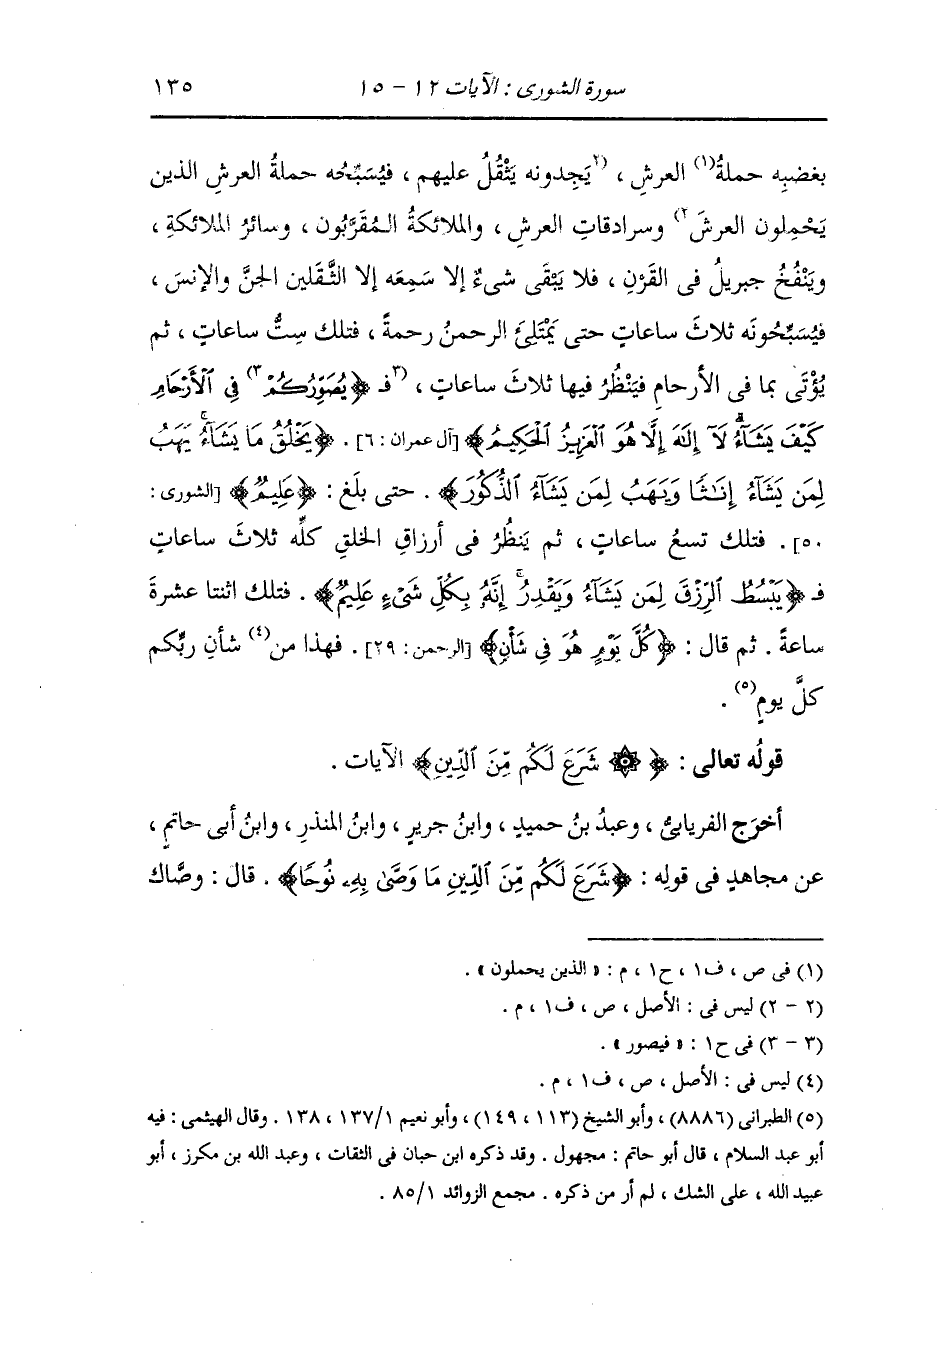 سورة الشورى : الآيات ١٢ - ١٥ ١٣٥
بغضبِه حملةُ(١) العرشِ ، (٢يَجِدونه يَثْقُلُ عليهم ، فيُسَبِّحُه حملةُ العرشِ الذين
يَحْمِلون العرشَ٢) وسرادقاتِ العرشِ ، والملائكةُ المُقَرَّبُون ، وسائرُ الملائكةِ ،
ويَنْفُخُ جبريلُ فى القَرْنِ ، فلا يَبْقَى شىءٌ إلا سَمِعَه إلا الثَّقَلين الجنَّ والإنسَ ،
فيُسَبِّحُونَه ثلاثَ ساعاتٍ حتى يَمْتَلِئَ الرحمنُ رحمةً ، فتلك سِتُّ ساعاتٍ ، ثم
يُؤْتَى بما فى الأرحامِ فيَنْظُرُ فيها ثلاثَ ساعاتٍ ، (٣فـ ﴿يُصَوِّرُكُمْ٣) فِي ٱلْأَرْحَامِ
كَيْفَ يَشَآءُ لَآ إِلَٰهَ إِلَّا هُوَ ٱلْعَزِيزُ ٱلْحَكِيمُ﴾ [آل عمران : ٦] . ﴿يَخْلُقُ مَا يَشَآءُ يَهَبُ
لِمَن يَشَآءُ إِنَٰثًا وَيَهَبُ لِمَن يَشَآءُ ٱلذُّكُورَ﴾ . حتى بلَغ : ﴿عَلِيمٌ﴾ [الشورى :
٥٠] . فتلك تسعُ ساعاتٍ ، ثم يَنظُرُ فى أرزاقِ الخلقِ كلِّه ثلاثَ ساعاتٍ
فـ ﴿يَبْسُطُ ٱلرِّزْقَ لِمَن يَشَآءُ وَيَقْدِرُ إِنَّهُ بِكُلِّ شَىْءٍ عَلِيمٌ﴾ . فتلك اثنتا عشرةَ
ساعةً . ثم قال : ﴿كُلَّ يَوْمٍ هُوَ فِي شَأْنٍ﴾ [الرحمن : ٢٩] . فهذا من(٤) شأنِ ربِّكم
كلَّ يومٍ(٥) .
قولُه تعالى : ﴿ ۞ شَرَعَ لَكُم مِّنَ ٱلدِّينِ﴾ الآيات .
أخرَج الفريابىُّ ، وعبدُ بنُ حميدٍ ، وابنُ جريرٍ ، وابنُ المنذرِ ، وابنُ أبى حاتمٍ ،
عن مجاهدٍ فى قولِه : ﴿شَرَعَ لَكُم مِّنَ ٱلدِّينِ مَا وَصَّىٰ بِهِۦ نُوحًا﴾ . قال : وصَّاك
(١) فى ص ، ف١ ، ح١ ، م : « الذين يحملون » .
(٢ - ٢) ليس فى : الأصل ، ص ، ف١ ، م .
(٣ - ٣) فى ح١ : « فيصور » .
(٤) ليس فى : الأصل ، ص ، ف١ ، م .
(٥) الطبرانى (٨٨٨٦) ، وأبو الشيخ (١١٣ ، ١٤٩) ، وأبو نعيم ١/ ١٣٧ ، ١٣٨ . وقال الهيثمى : فيه
أبو عبد السلام ، قال أبو حاتم : مجهول . وقد ذكره ابن حبان فى الثقات ، وعبد الله بن مكرز ، أبو
عبيد الله ، على الشك ، لم أر من ذكره . مجمع الزوائد ١/ ٨٥ .